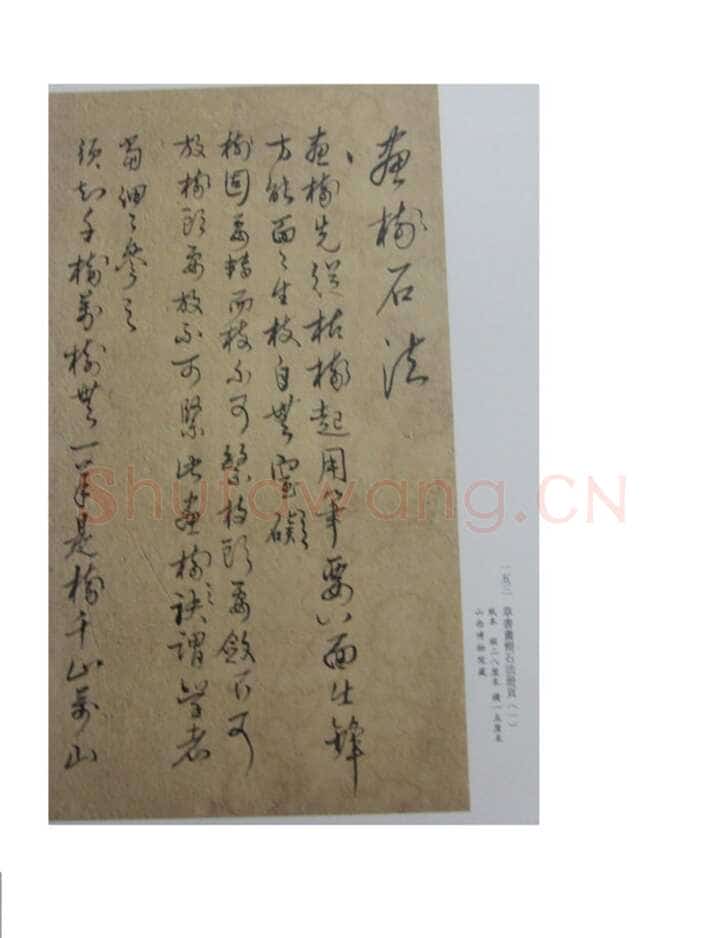 畫樹石法
畫樹先從枯樹起用筆要八面出鋒
方能面々生枝自無窒礙
樹固要轉而枝不可繁枝頭要斂不可
放樹頭要放不可緊此畫樹之訣謂學者
當細々參之
須知千樹萬樹無一筆是樹千山萬山
一五三 草書畫樹石法冊頁(一)
紙本 縱二八厘米 橫一五厘米
山西博物院藏
Shufawang.CN